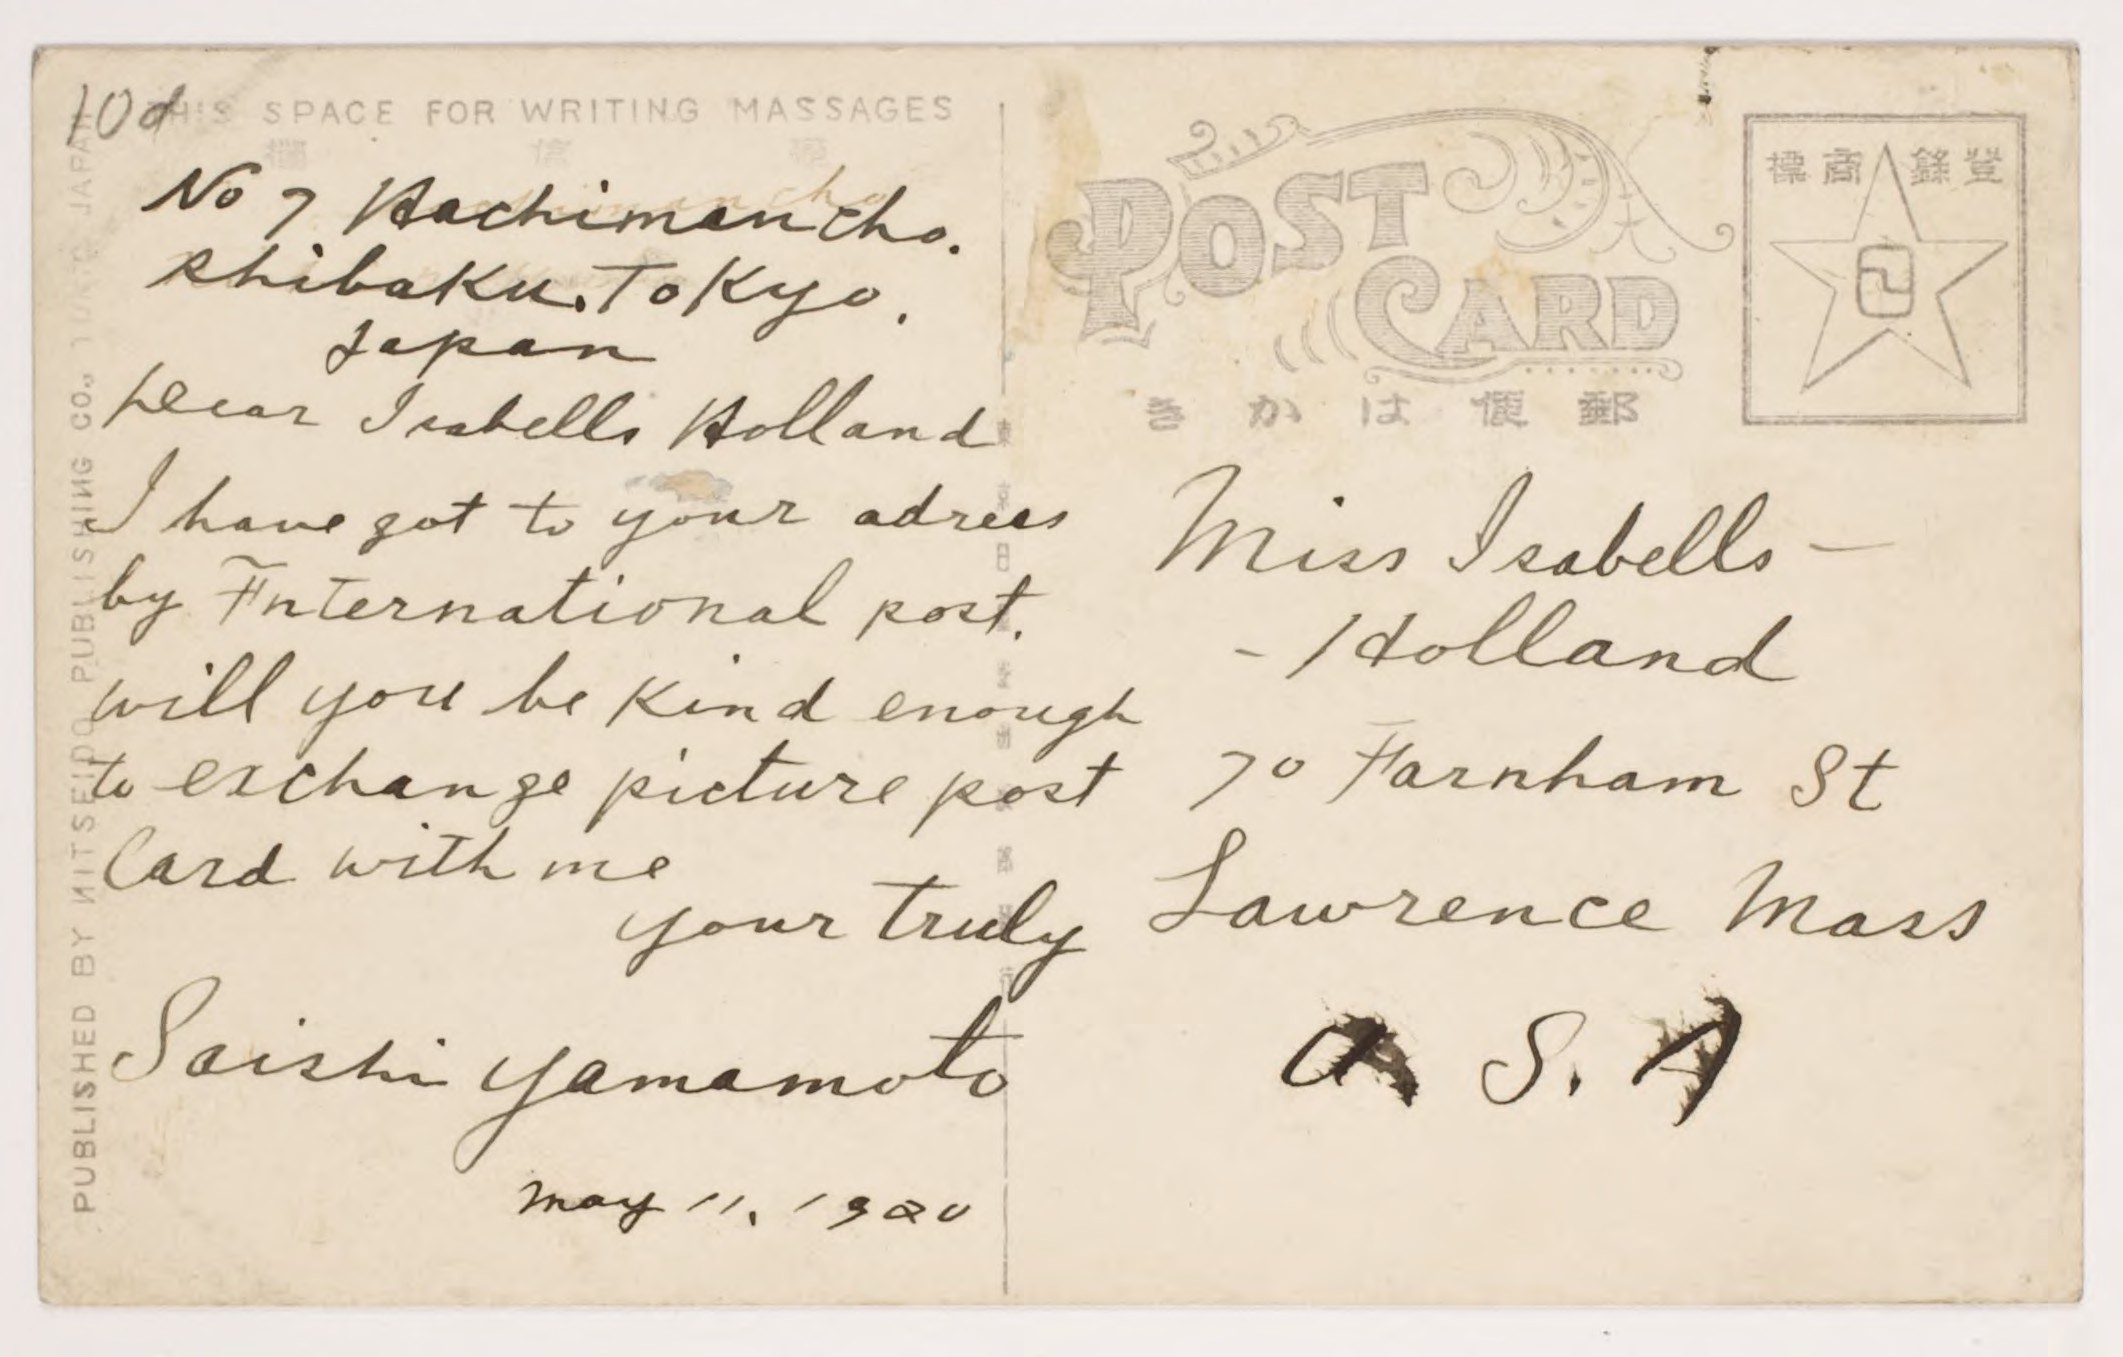 10d
THIS SPACE FOR WRITING MASSAGES
No 7 Hachimancho.
Shibaku. Tokyo.
Japan
Dear Isabells Holland
I have got to your adress
by International post.
will you be kind enough
to exchange picture post
Card with me
your truly
Saishi Yamamoto
May 11, 1920
PUBLISHED BY MITSEIDO PUBLISHING CO., TOKYO JAPAN
POST
CARD
きかは便郵
標商 錄登
Miss Isabells —
- Holland
70 Farnham St
Lawrence Mass
U S. A